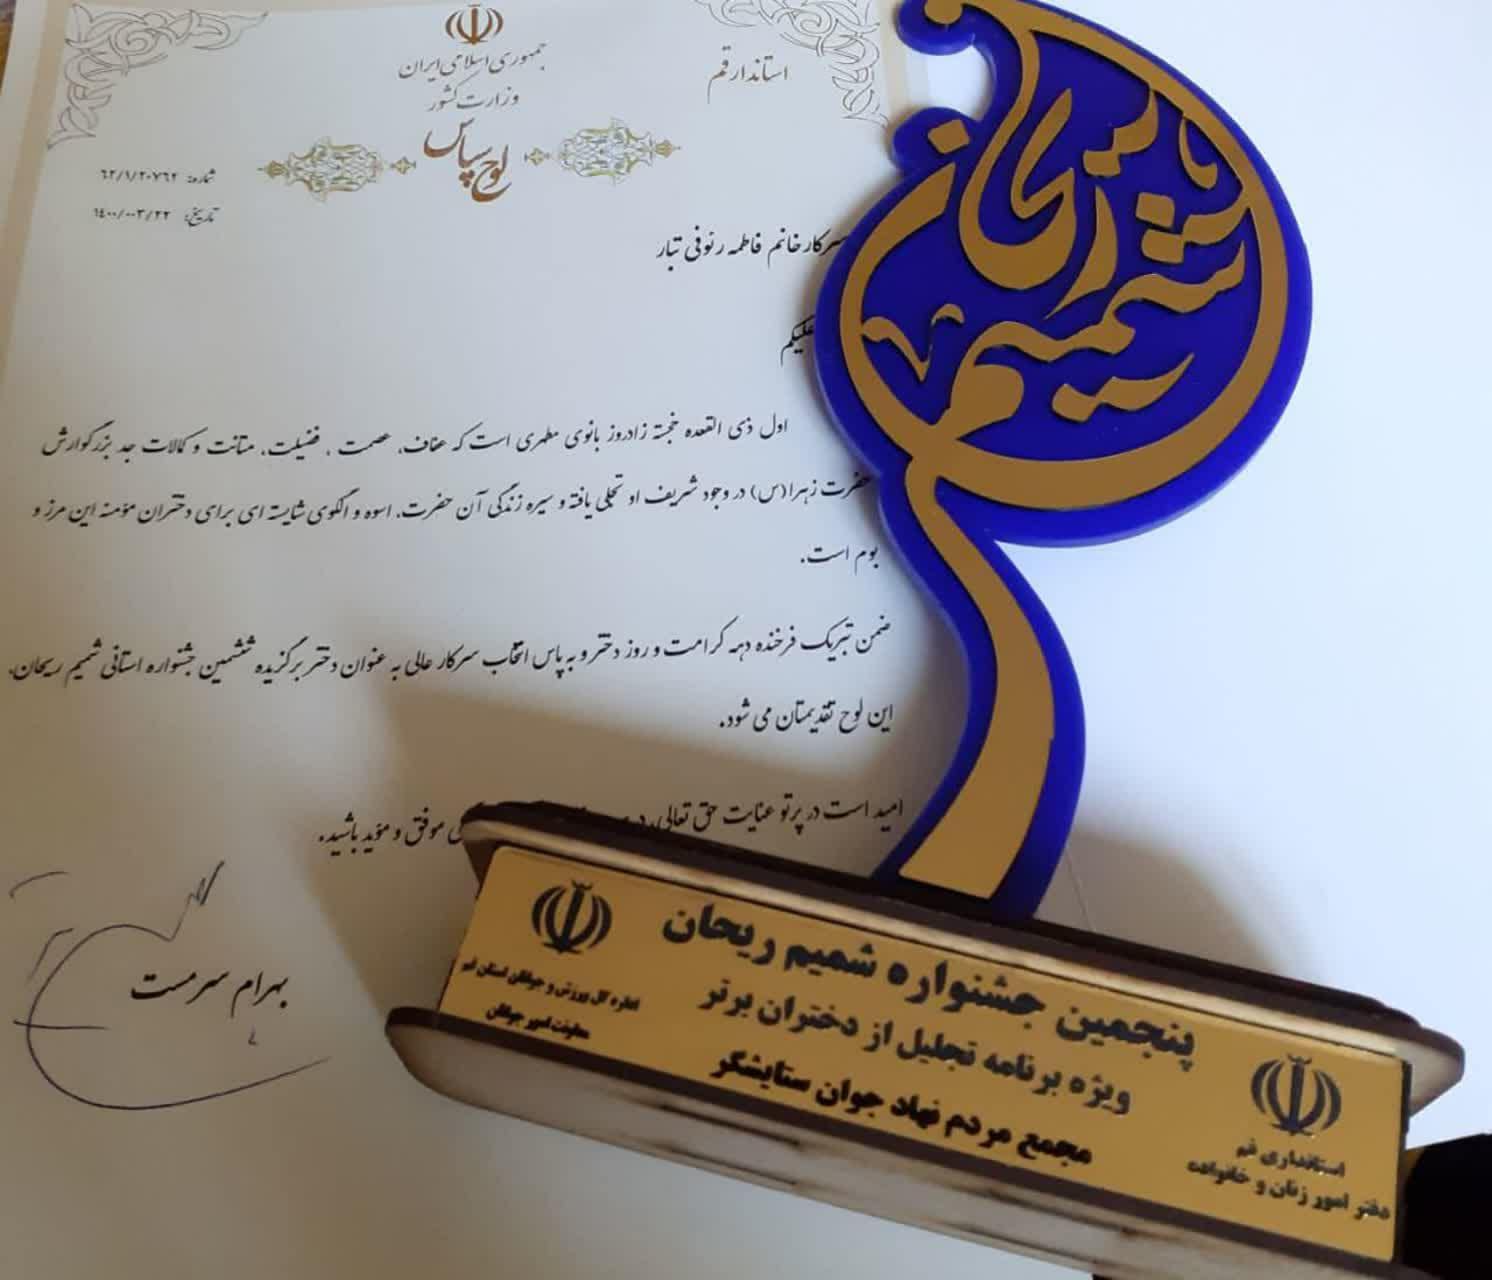 جمهوری اسلامی ایران
وزارت کشور
استاندار قم
لوح سپاس
شماره: ۶۲/۱/۲۰۷۶۲
تاریخ: ۱۴۰۰/۰۰۳/۲۲
سرکار خانم فاطمه رئوفی تبار
علیکم
اول ذی القعده خجسته زادروز بانوی مطهری است که عفاف، عصمت ، فضیلت، متانت و کمالات جد بزرگوارش
حضرت زهرا(س) در وجود شریف او تجلی یافته و سیره زندگی آن حضرت، اسوه و الگوی شایسته ای برای دختران مؤمنه این مرز و
بوم است.
ضمن تبریک فرخنده دهه کرامت و روز دختر و به پاس انتخاب سرکار عالی به عنوان دختر برگزیده ششمین جشنواره استانی شمیم ریحان،
این لوح تقدیمتان می شود.
امید است در پرتو عنایت حق تعالی،
موفق و مؤید باشید.
بهرام سرمست
شمیم
ریحان
پنجمین جشنواره شمیم ریحان
ویژه برنامه تجلیل از دختران برتر
مجمع مردم نهاد جوان ستایشگر
اداره کل ورزش و جوانان استان قم
معاونت امور جوانان
استانداری قم
دفتر امور زنان و خانواده